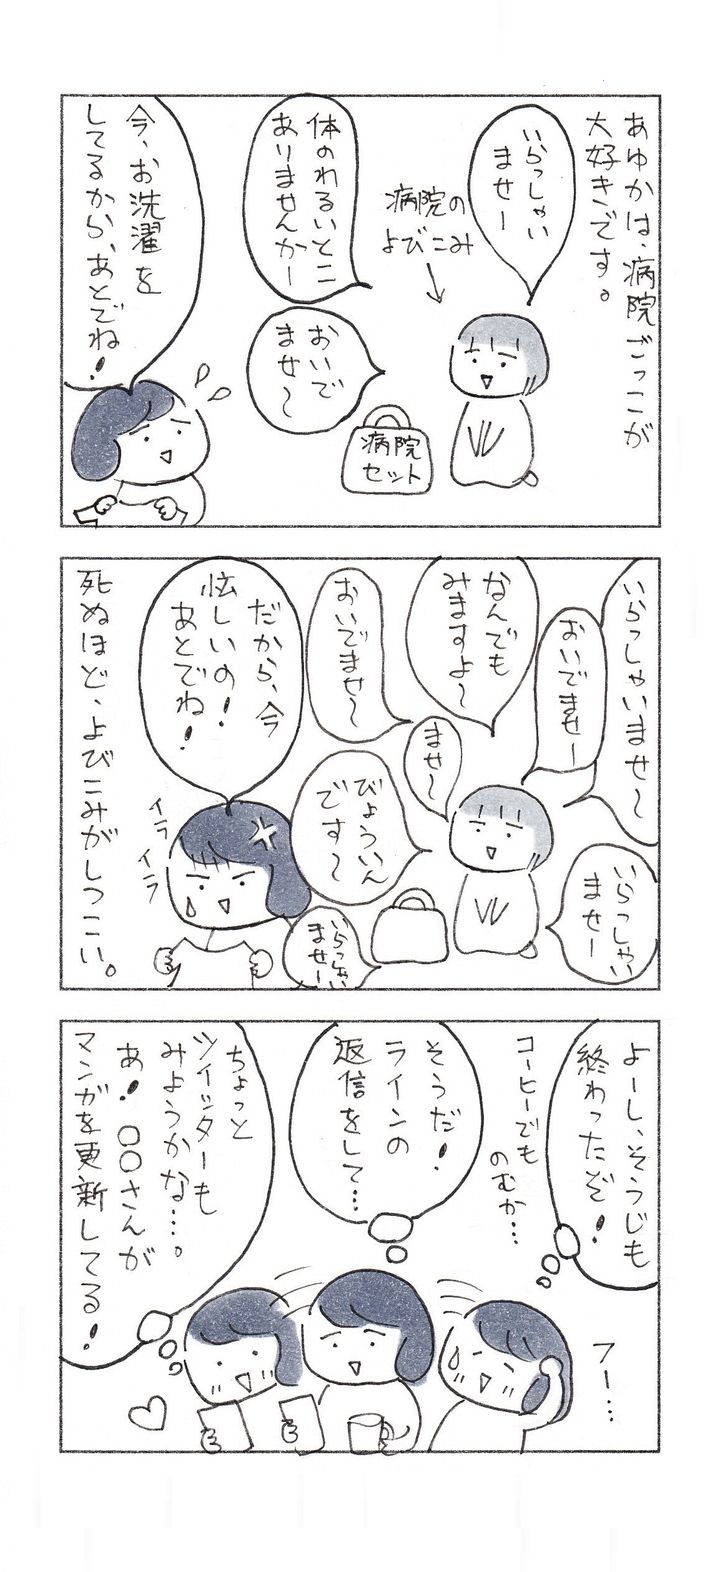 あゆかは、病院ごっこが
大好きです。
いらっしゃい
ませー
病院の
よびこみ
体のわるいとこ
ありませんかー
おいで
ませ～
病院
セット
今、お洗濯を
してるから、あとでね!
いらっしゃいませ～
おいでませー
なんでも
みますよ～
おいでませ～
ませ～
びょういん
です～
いらっしゃい
ませー
いらっしゃい
ませー
だから、今
忙しいの!
あとでね!
イラ
イラ
死ぬほど、よびこみがしつこい。
よーし、そうじも
終わったぞ!
コーヒーでも
のむか…
フー…
そうだ!
ラインの
返信をして…
ちょっと
ツイッターも
みようかな…。
あ!○○さんが
マンガを更新してる!